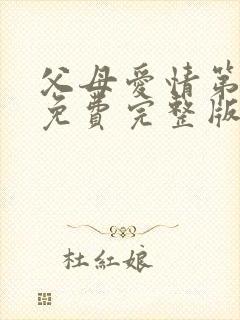 父母愛情第
免費完整版
杜紅娘